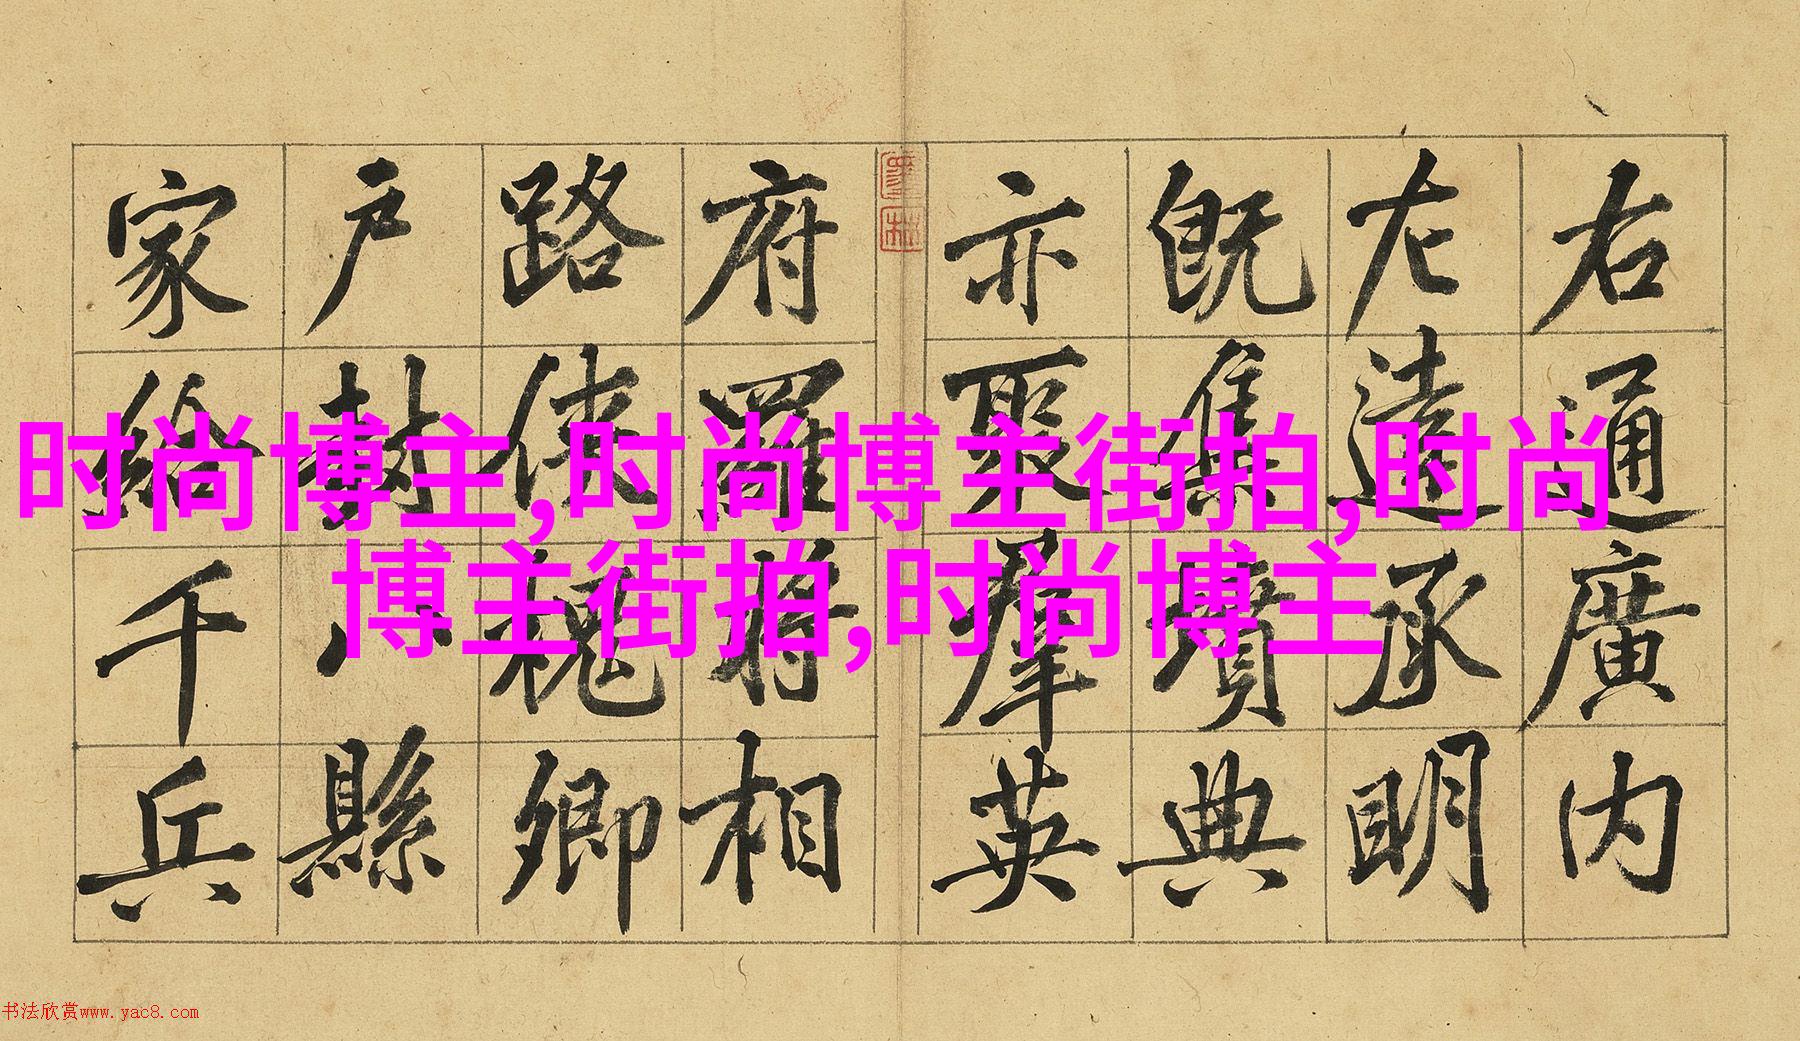 右通廣内
左達承明
既集墳典
亦聚羣英
府羅將相
路俠槐卿
户封八縣
家給千兵
时尚博主,时尚博主街拍,时尚
博主街拍,时尚博主
书法欣赏www.yac8.com